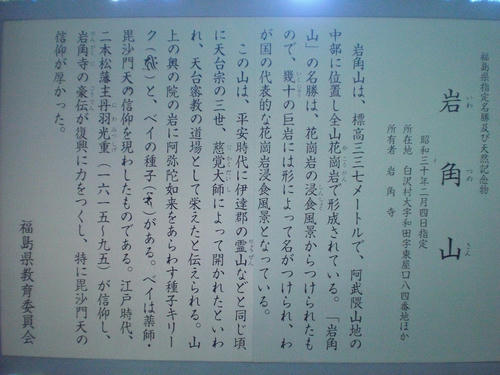 福島県指定名勝及び天然記念物
岩角山
いわ つの さん
昭和三十年二月四日指定
所在地 白沢村大字和田字東屋口八四番地ほか
所有者 岩角寺
岩角山は、標高三三七メートルで、阿武隈山地の
中部に位置し全山花崗岩で形成されている。「岩角
山」の名勝は、花崗岩の浸食風景からつけられたも
ので、幾十の巨岩には形によって名がつけられ、わ
が国の代表的な花崗岩浸食風景となっている。
この山は、平安時代に伊達郡の霊山などと同じ頃
に天台宗の三世、慈覚大師によって開かれたといわ
れ、天台密教の道場として栄えたと伝えられる。山
上の奥の院の岩に阿弥陀如来をあらわす種子キリー
ク()と、ベイの種子()がある。ベイは薬師・
毘沙門天の信仰を現わしたものである。江戸時代、
二本松藩主丹羽光重(一六一五~九五)が信仰し、
岩角寺の豪伝が復興に力をつくし、特に毘沙門天の
信仰が厚かった。
福島県教育委員会